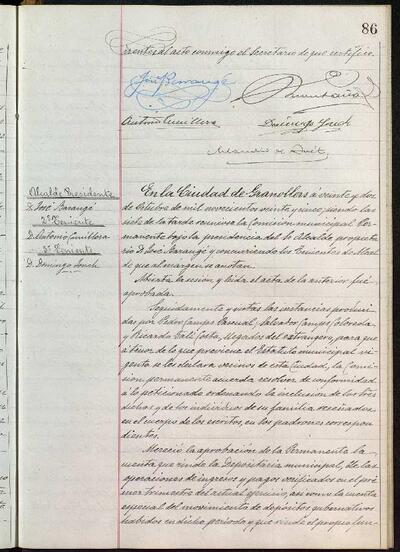 86
al acto conmigo el Secretario de que certifico.
José Barangé
Antonio Cumellera
Domingo Jonch
Alcalde Presidente
D. José Barangé
2º Teniente
D. Antonio Cumellera
3º Teniente
D. Domingo Jonch
En la Ciudad de Granollers á veinte y dos
de Octubre de mil novecientos veinte y cinco, siendo las
siete de la tarde reunióse la Comisión municipal Per-
manente bajo la presidencia del Sr. Alcalde propieta-
rio D. José Barangé y concurriendo los Tenientes de Alcal-
de que al margen se anotan.
Abierta la sesión y leída el acta de la anterior fué
aprobada.
Seguidamente y vistas las instancias produci-
das por Pedro Camps Pascual, Salvador Camps
y Ricardo Vall Costa, llegados del extrangero, para que
á tenor de lo que previene el Estatuto municipal vi-
gente se les declare vecinos de esta Ciudad, la Comi-
sión permanente acuerda resolver de conformidad
á lo peticionado ordenando la inclusión de los tres
dichos y de los individuos de su familia reseñados
en el cuerpo de los escritos, en los padrones correspon-
dientes.
Mereció la aprobación de la Permanente la
cuenta que rinde la Depositaría municipal, de las
operaciones de ingresos y pagos verificados en el pri-
mer trimestre del actual ejercicio, así como la cuenta
especial del movimiento de depósitos gubernativos
habidos en dicho período y que rinde el propio fun-